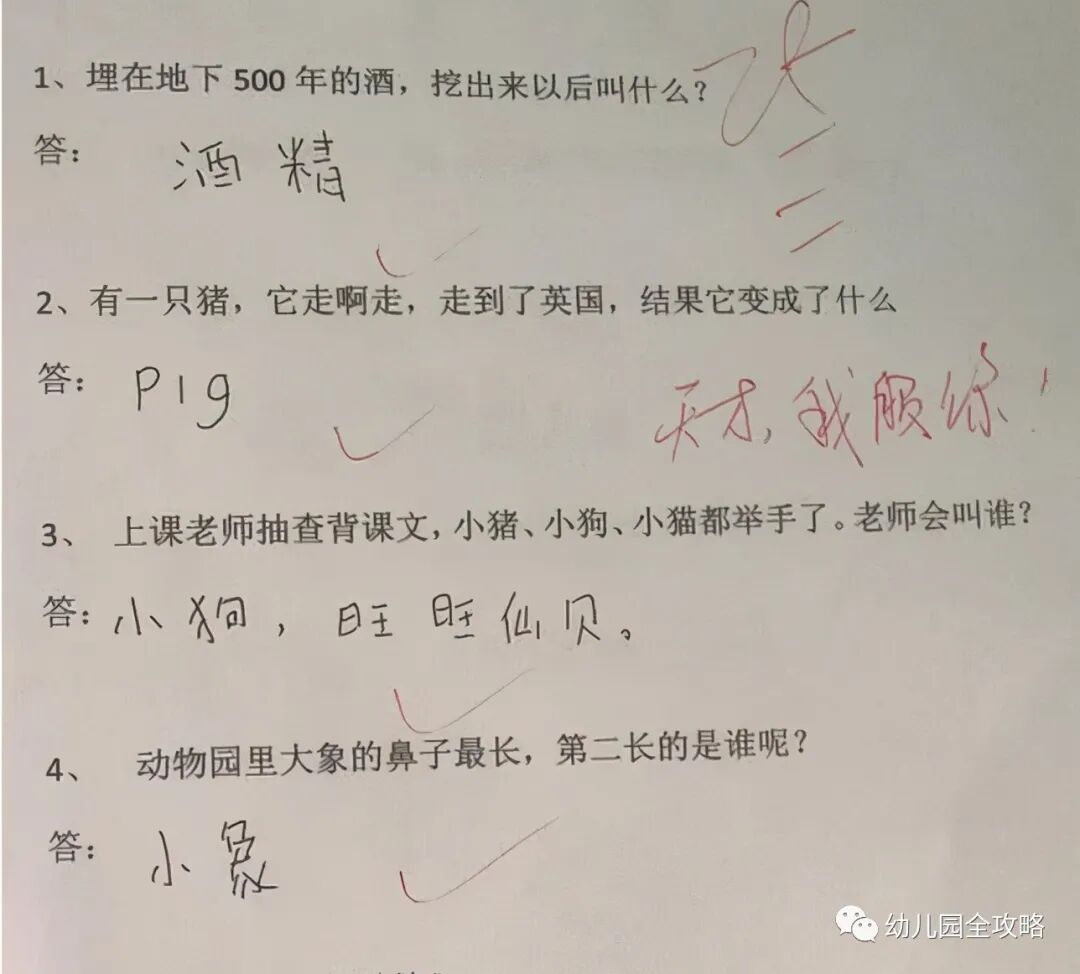 1、埋在地下 500 年的酒，挖出来以后叫什么？
答：酒精
2、有一只猪，它走啊走，走到了英国，结果它变成了什么
答：pig
天才，我服你！
3、上课老师抽查背课文，小猪、小狗、小猫都举手了。老师会叫谁？
答：小狗，旺旺仙贝。
4、动物园里大象的鼻子最长，第二长的是谁呢？
答：小象
幼儿园全攻略